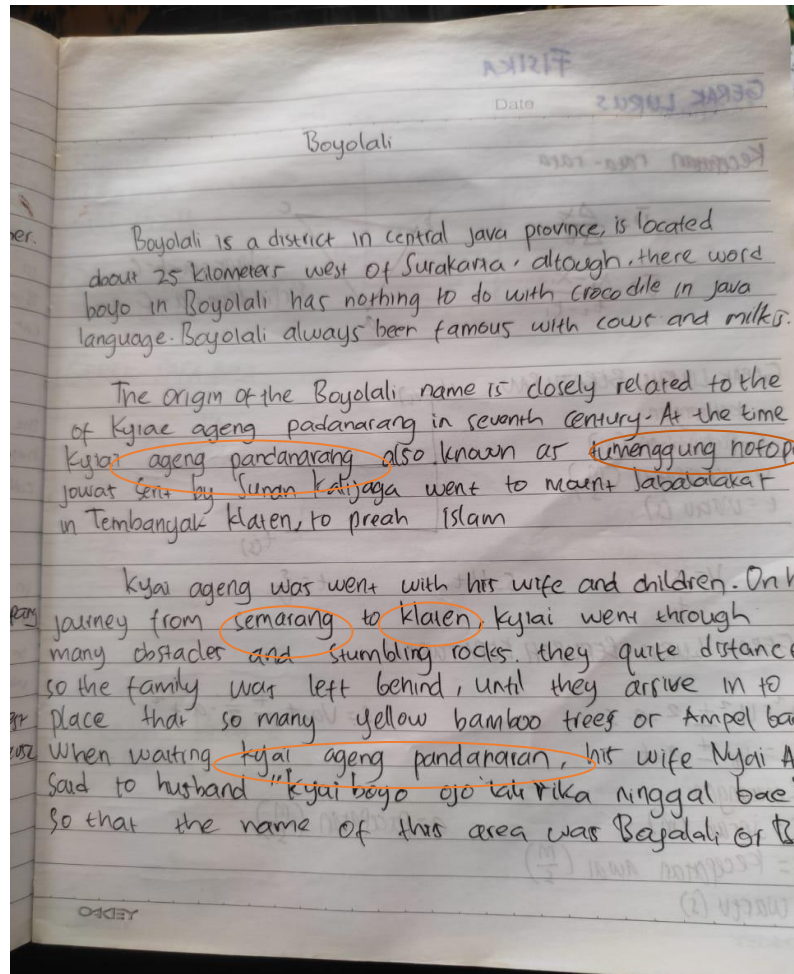 FISIKA
GERAK LURUS
Date
Kecepatan rata-rata
Boyolali
er.
Boyolali is a district in central Java province, is located
about 25 kilometers west of Surakarta. altough, there word
boyo in Boyolali has nothing to do with crocodile in java
language. Boyolali always been famous with cows and milks.
The origin of the Boyolali name is closely related to the
of Kyiae ageng padanarang in seventh century. At the time
Kyiai ageng pandanarang also known as tumenggung notop
jowat sent by Sunan Kalijaga went to mount Jabalalakat
in Tembanyak klaten, to preah Islam
Kyai ageng was went with his wife and children. On h
journey from semarang to klaten, kyiai went through
many obstacles and stumbling rocks. they quite distanc
so the family was left behind, until they arsive in to
place that so many yellow bamboo trees or Ampel ba
When waiting kyai ageng pandanaran, his wife Nyai A
Said to husband "kyai boyo ojo lali rika ninggal bae
So that the name of this area was Bayalali or B
= kecepatan awal (m/s)
waktu (s)